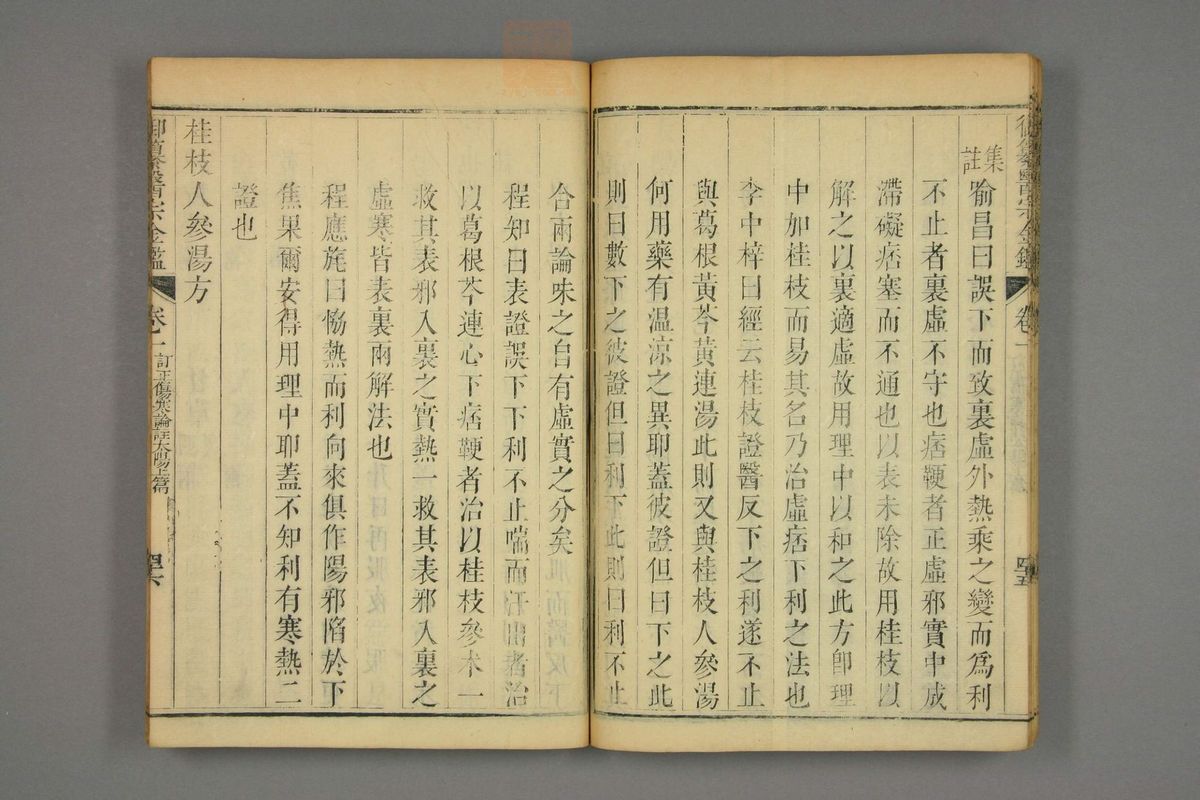 集註
喻昌曰誤下而致裏虛外熱乘之變而爲利
不止者裏虛不守也痞鞕者正虛邪實中成
滯礙痞塞而不通也以表未除故用桂枝以
解之以裏適虛故用理中以和之此方卽理
中加桂枝而易其名乃治虛痞下利之法也
李中梓曰經云桂枝證醫反下之利遂不止
與葛根黃芩黃連湯此則又與桂枝人參湯
何用藥有温涼之異耶蓋彼證但曰下之此
則曰數下之彼證但曰利下此則曰利不止
合兩論味之自有虛實之分矣
程知曰表證誤下下利不止喘而汗出者治
以葛根芩連心下痞鞕者治以桂枝參朮一
救其表邪入裏之實熱一救其表邪入裏之
虛寒皆表裏兩解法也
程應旄曰恊熱而利向來俱作陽邪陷於下
焦果爾安得用理中耶蓋不知利有寒熱二
證也
桂枝人參湯方
御纂醫宗金鑑
卷一
訂正傷寒論註太陽上篇
四六